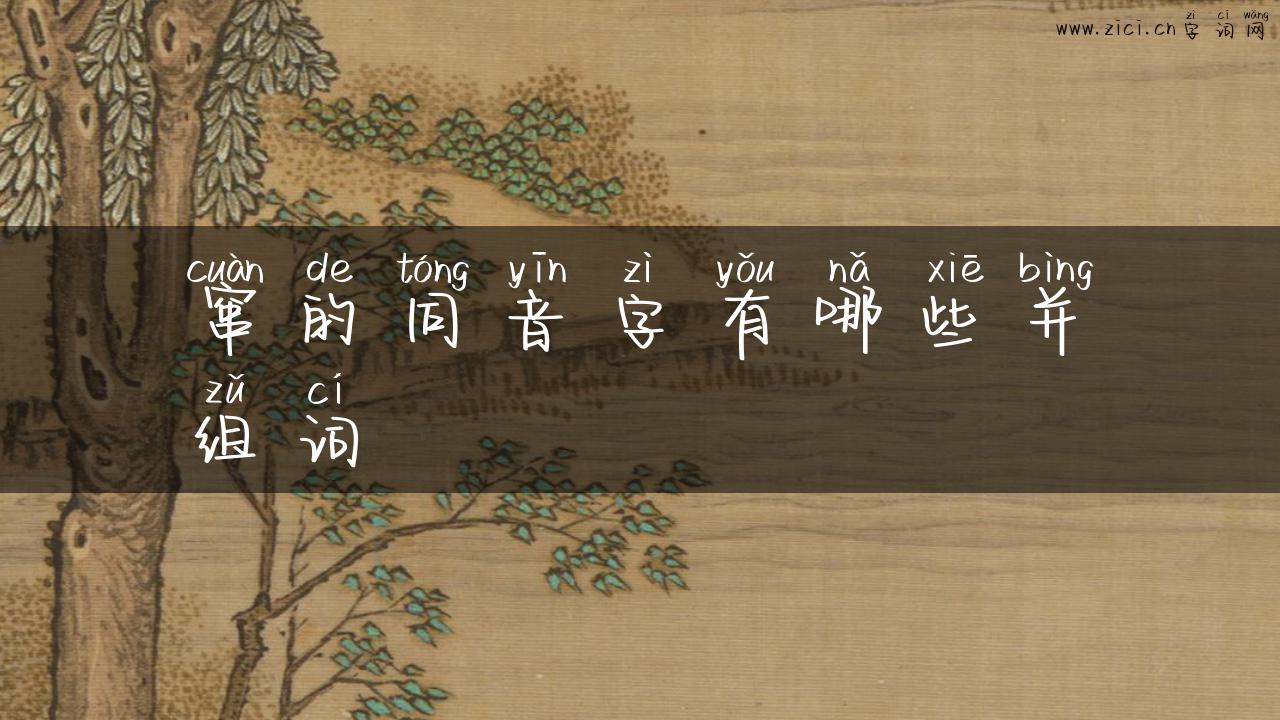 zì cí wǎng
www.zici.cn 字词网
cuàn de tóng yīn zì yǒu nǎ xiē bìng
窜的同音字有哪些并
zǔ cí
组词